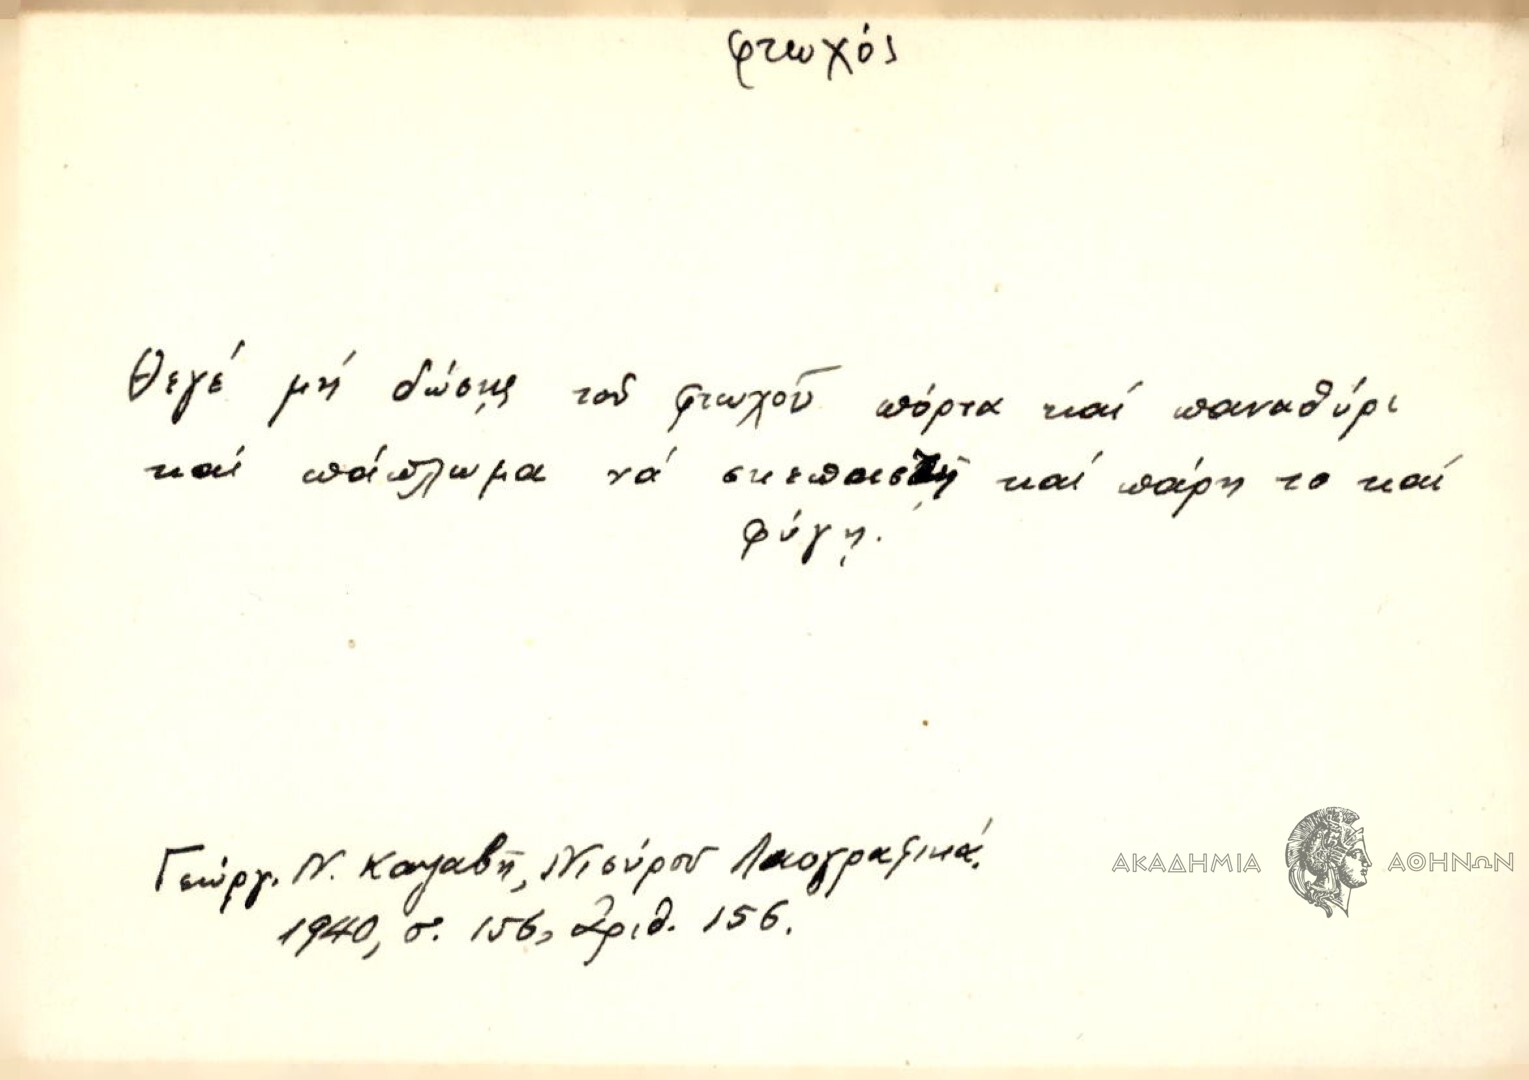 φτωχός
Θεγέ μή δώσῃς τοῦ φτωχοῦ πόρτα καί παναθύρι
καί πάπλωμα νά καί πάρη το καί
φύγῃ.
Γεώργ. Ν. Καζαβῆ, Νισύρου Λαογραφικά.
1940, σ. 156, ἀριθ. 156.
ΑΚΑΔΗΜΙΑ ΑΘΗΝΩΝ